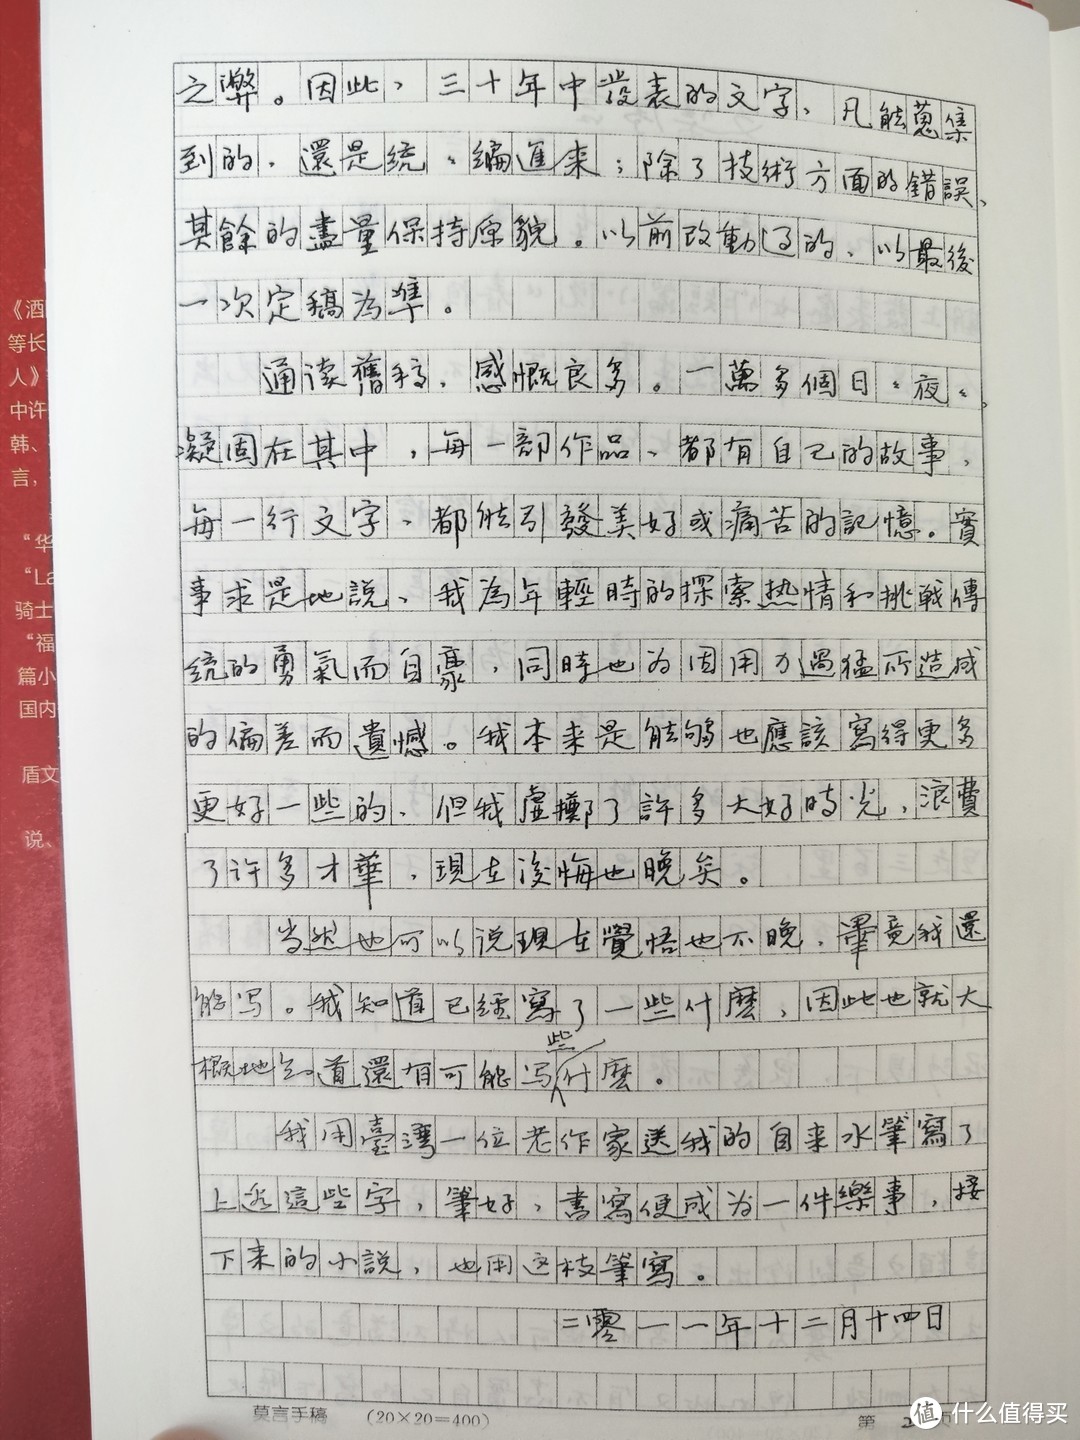 之弊。因此，三十年中發表的文字，凡能蒐集
到的，還是統〻編進来；除了技術方面的錯誤、
其餘的盡量保持原貌。以前改動过的，以最後
一次定稿為準。
通读舊稿，感慨良多。一萬多個日〻夜〻，
凝固在其中，每一部作品，都有自己的故事，
每一行文字，都能引發美好或痛苦的記憶。實
事求是地說，我為年輕時的探索热情和挑戦傳
统的勇氣而自豪，同時也为因用力過猛所造成
的偏差而遺憾。我本来是能够也應該寫得更多
更好一些的，但我虚擲了許多大好時光，浪費
了许多才華，現在後悔也晚矣。
当然也可以说現在覺悟也不晚，畢竟我還
能写。我知道已經寫了一些什麼，因此也就大
概地知道還有可能写些什麼。
我用臺灣一位老作家送我的自来水筆寫了
上述這些字，筆好，書寫便成为一件樂事，接
下来的小説，也用这枝筆寫。
二零一一年十二月十四日
莫言手稿 （20×20=400） 第 2 页
《酒
等长
人》
中许
韩、
言，
“华
“La
骑士
“福
篇小
国内
盾文
说、
值 什么值得买